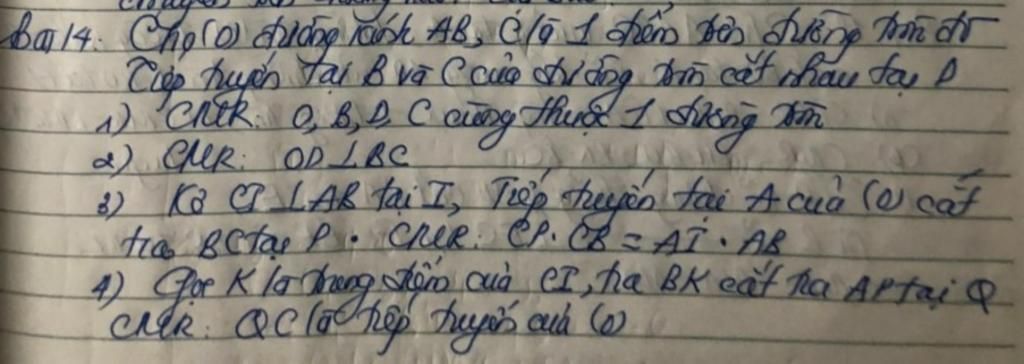 Bài 14: Cho (O) đường kính AB, C là 1 điểm trên đường tròn đó
Tiếp tuyến tại B và C của đường tròn cắt nhau tại D
1) CMR: O, B, D, C cùng thuộc 1 đường tròn
2) CMR: OD ⊥ BC
3) Kẻ CI ⊥ AB tại I, Tiếp tuyến tại A của (O) cắt
tia BC tại P. CMR: CP. CB = AI. AB
4) Gọi K là trung điểm của CI, tia BK cắt tia AP tại Q
CMR: QC là tiếp tuyến của (O)